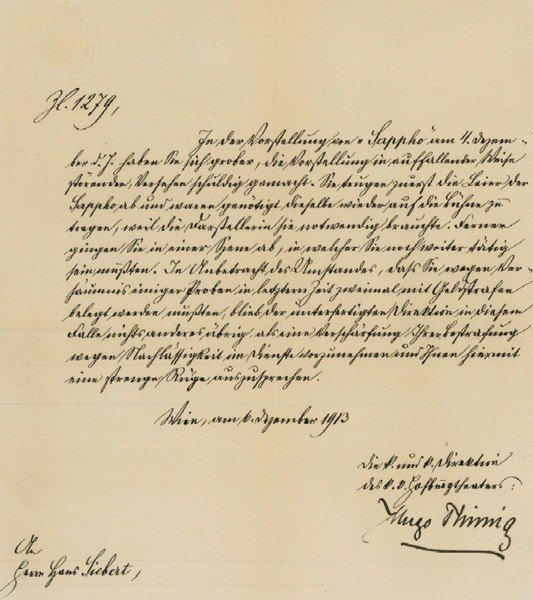 Zl. 1279,
In der Vorstellung von „Sappho" am 4. Dezem-
ber d. J. haben Sie sich grober, die Vorstellung in auffallender Weise
störender, Versehen schuldig gemacht. Sie trugen zuerst die Leier der
Sappho ab und waren genötigt, dieselbe wieder auf die Bühne zu
tragen, weil die Darstellerin sie notwendig brauchte. Ferner
gingen Sie in einer Szene ab, in welcher Sie noch weiter tätig
sein mußten. In Anbetracht des Umstandes, dass Sie wegen Ver-
säumnis einiger Proben in letztern Zeit zweimal mit Geldstrafen
belegt werden mußten, blieb der unterfertigten Direktion in diesem
Falle nichts anderes übrig als eine Verschärfung Ihrer Bestrafung
wegen Nachlässigkeit im Dienste vorzunehmen und Ihnen hiermit
eine strenge Rüge auszusprechen.
Wien, am 6. Dezember 1913
Die k. und k. Direktion
des k. k. Hofburgtheaters:
Hugo Thimig
An
Herrn Hans Siebert,